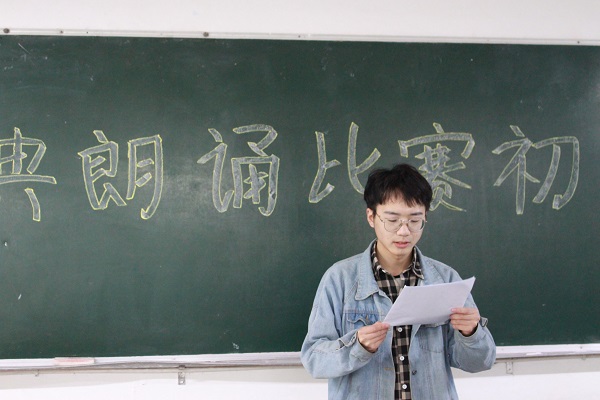 典朗诵比赛初